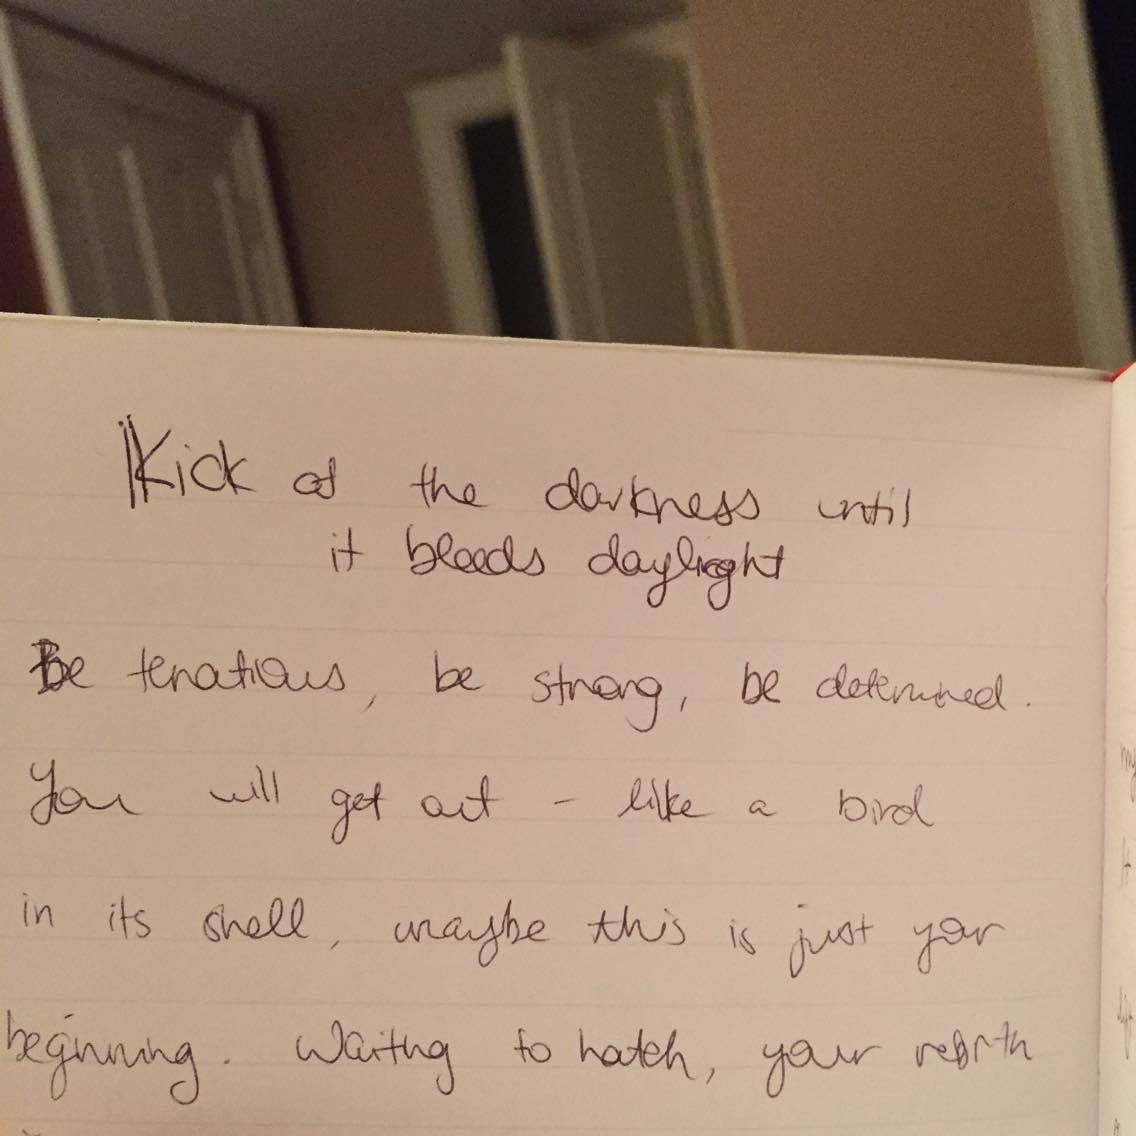 Kick at the darkness until
it bleeds daylight
Be tenatious, be strong, be determined.
You will get out - like a bird
in its shell, maybe this is just your
beginning. Waiting to hatch, your rebirth